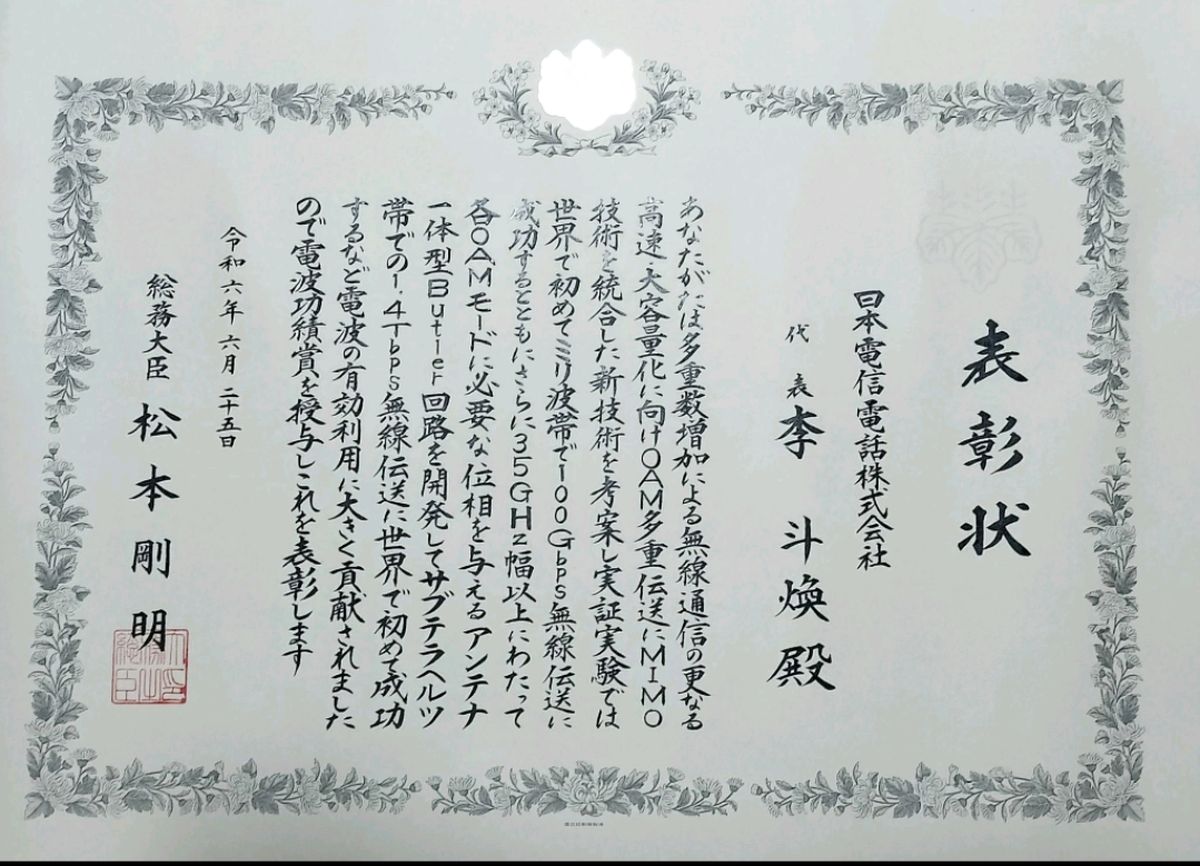 表彰状
日本電信電話株式会社
代表 李斗煥殿
あなたがたは多重数増加による無線通信の更なる
高速・大容量化に向けOAM多重伝送にMIMO
技術を統合した新技術を考案し実証実験では
世界で初めてミリ波帯で100Gbps無線伝送に
成功するとともにさらに35GHz幅以上にわたって
各OAMモードに必要な位相を与えるアンテナ
一体型Butler回路を開発してサブテラヘルツ
帯での1.4Tbps無線伝送に世界で初めて成功
するなど電波の有効利用に大きく貢献されました
ので電波功績賞を授与しこれを表彰します
令和六年六月二十五日
総務大臣 松本剛明
総務大臣之印